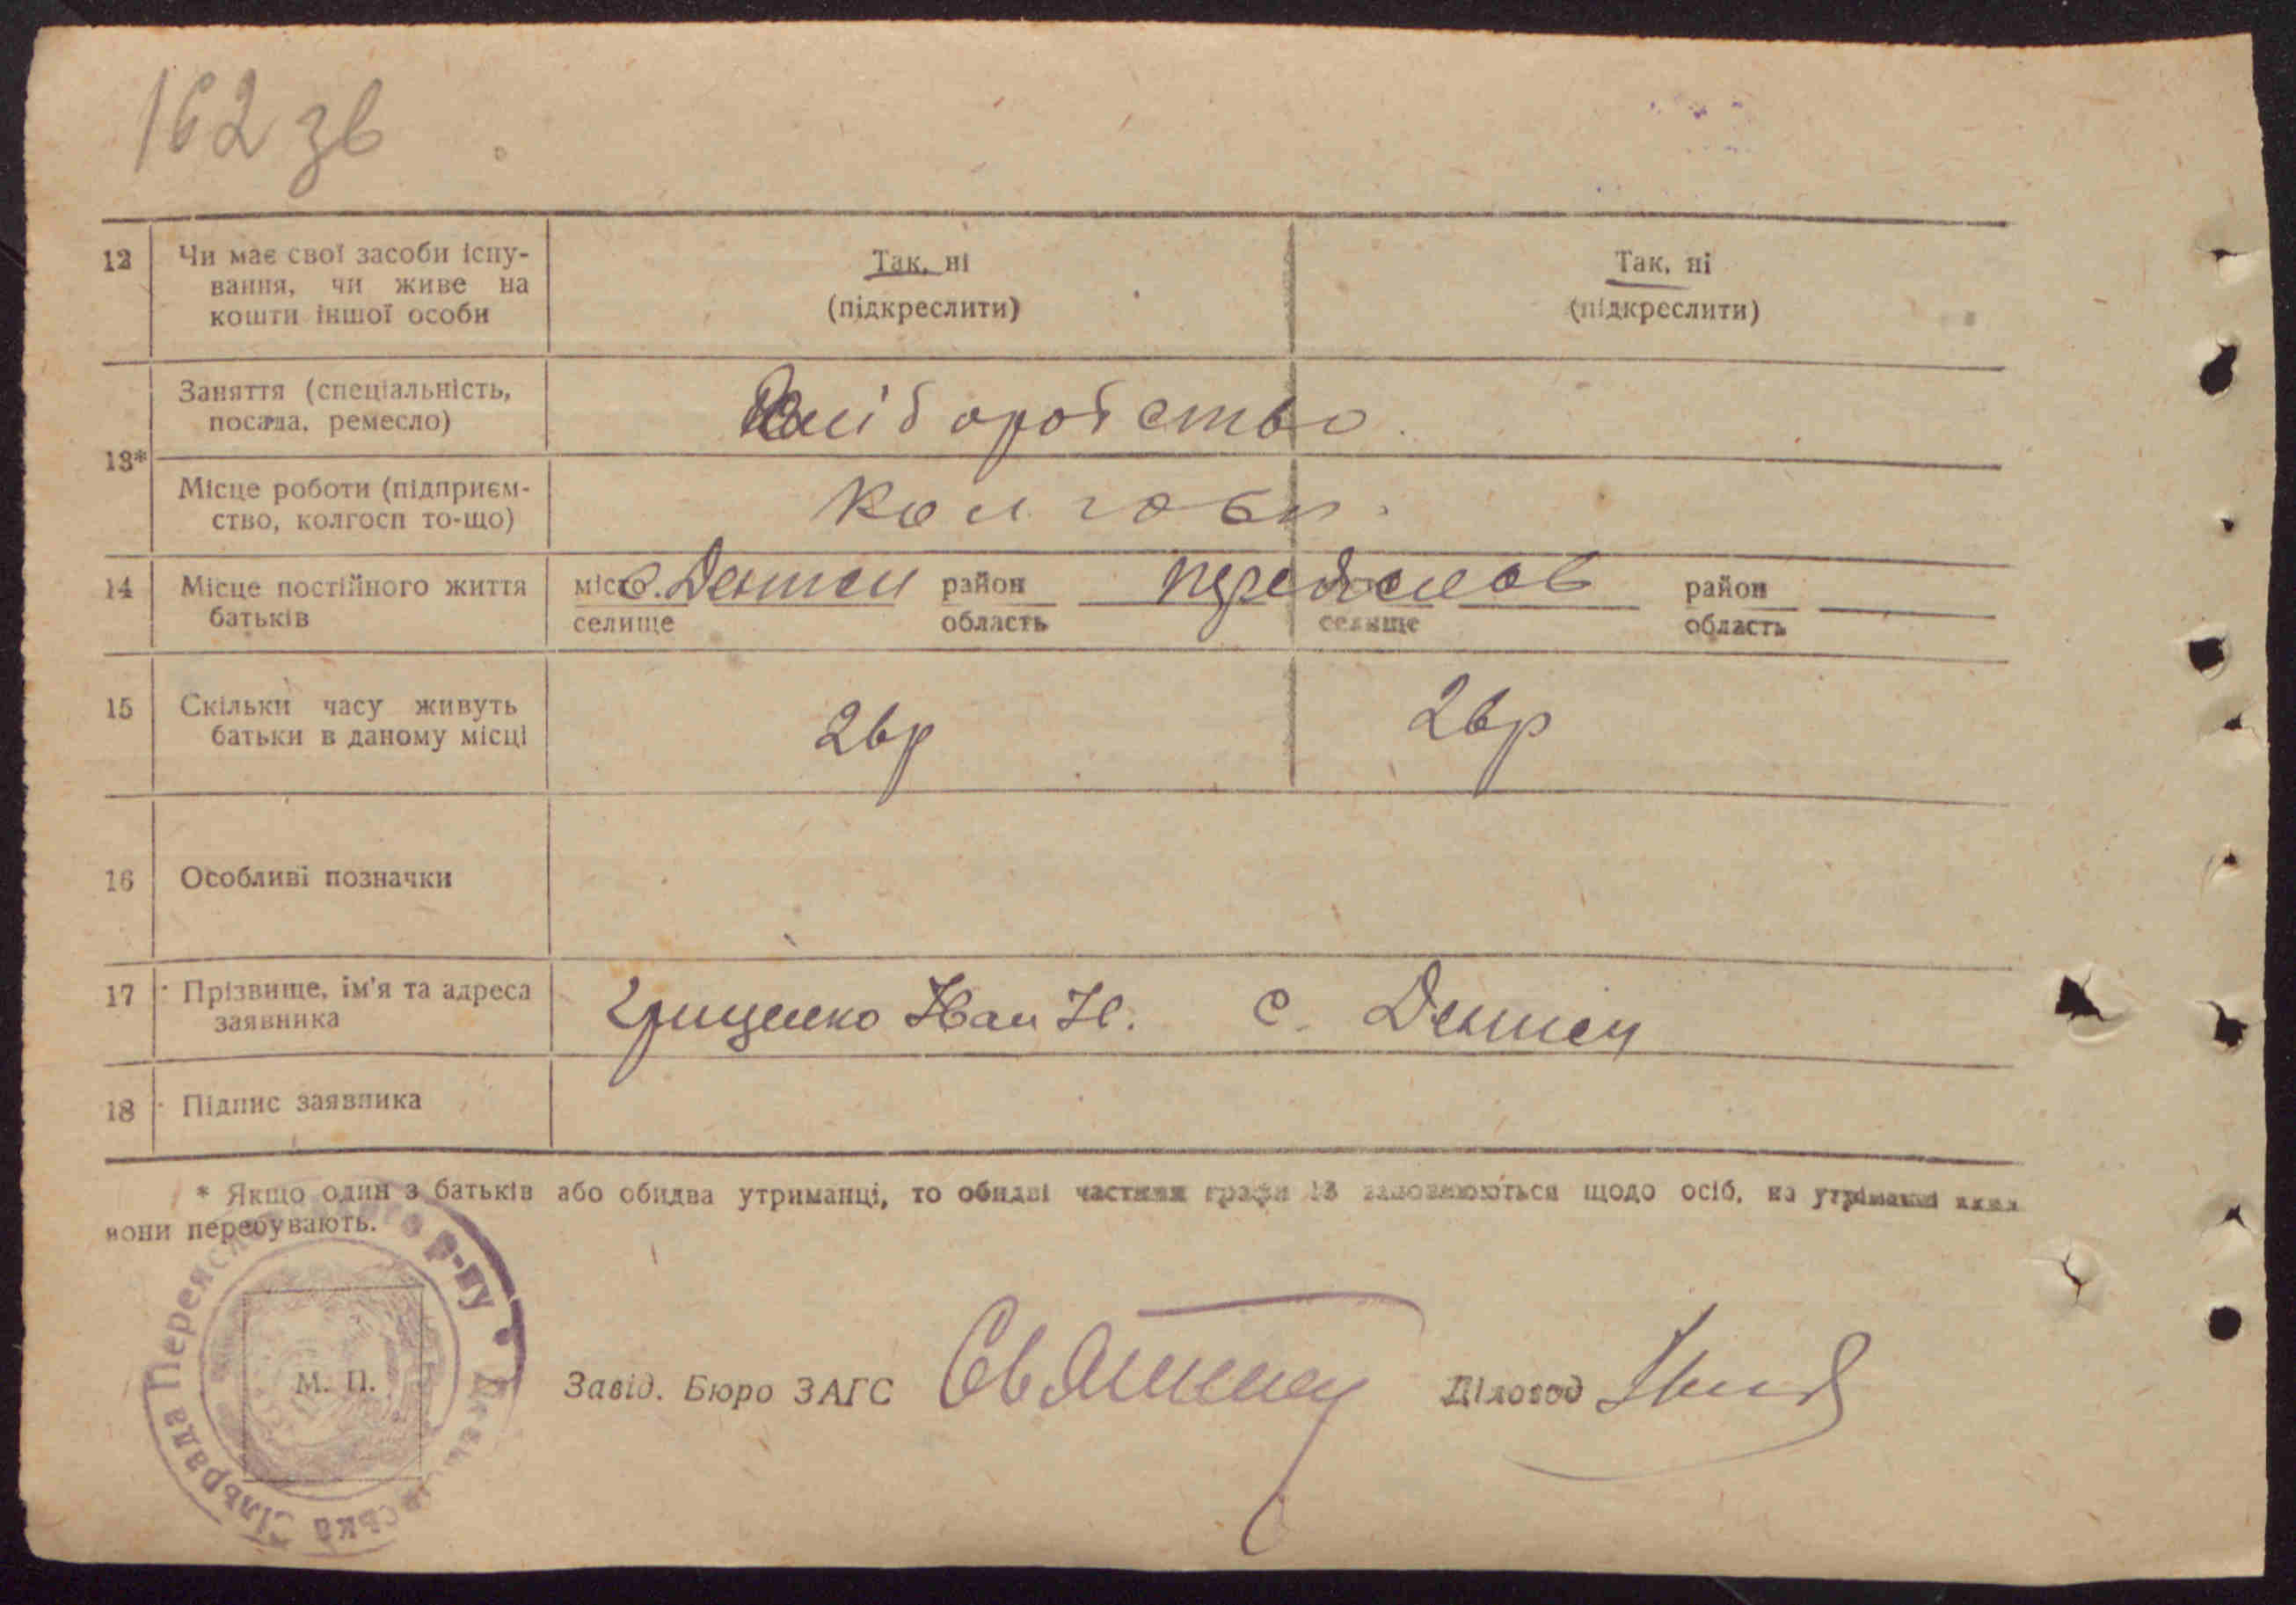 162 зв
12 Чи має свої засоби існу- Так, ні Так, ні
вання, чи живе на (підкреслити) (підкреслити)
кошти іншої особи
Заняття (спеціальність,
посада, ремесло) Хліборобство.
13*
Місце роботи (підприєм-
ство, колгосп то-що)
14 Місце постійного життя місто с. район Переяслов район
батьків селище область селище область
15 Скільки часу живуть 2вр 2вр
батьки в даному місці
16 Особливі позначки
17 Прізвище, ім'я та адреса Грищенко Иван И. с.
заявника
18 Підпис заявника
* Якщо один з батьків або обидва утриманці, то обидві частини графи 13 заповнюються щодо осіб, на утриманні яких
вони перебувають.
Сільрада Переяславського р-ну
М. П.
Завід. Бюро ЗАГС Діловод